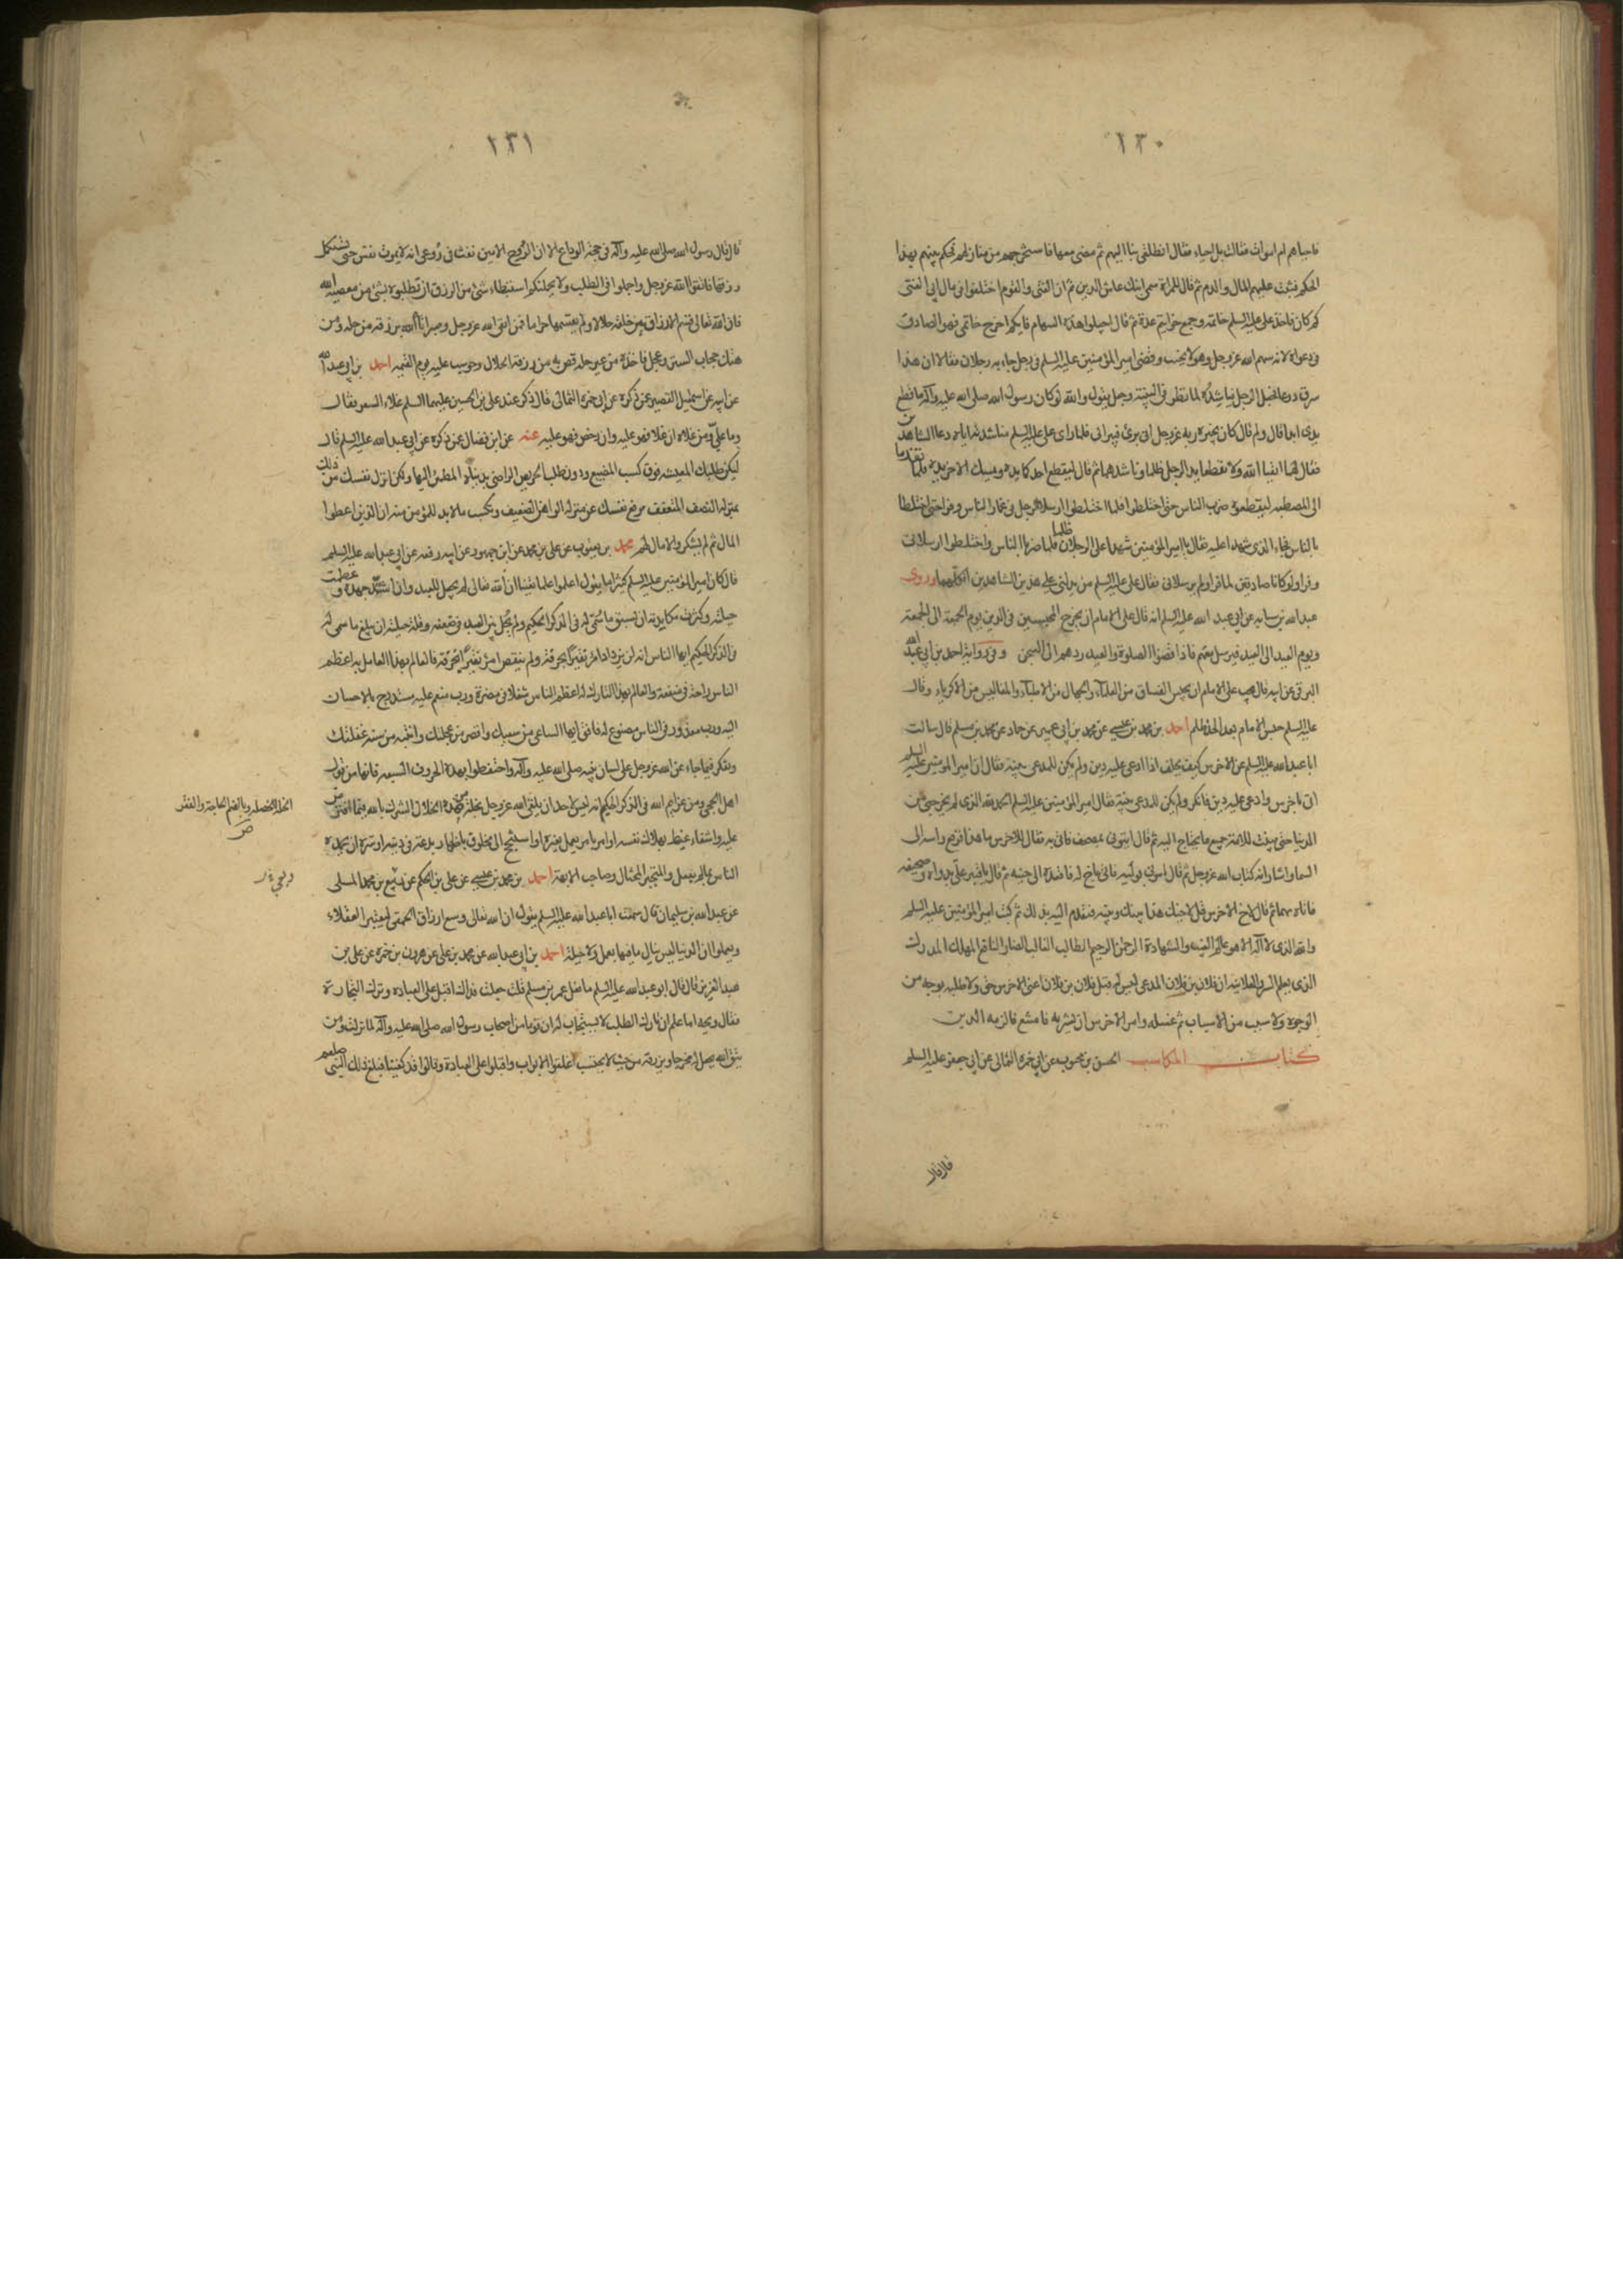 ١٣٠
فاحياهم ام اموات فقالت بل احياء فقال انطلقى بنا اليهم ثم مضى معها فاستخرجهم من منازلهم ثم حكم بينهم بهذا
الحكم فثبت عليهم المال والدم ثم قال للمراة سمى ابنك عاش الدين ثم ان الفتى والقوم اختلفوا فى مال ابى الفتى
كم كان فاخذ على عليه السلم خاتمه وجمع خواتيم عدة ثم قال اجيلوا هذه السهام فايكم اخرج خاتمى فهو الصادق
فى دعواه لانه سهم الله عز وجل وهو لا يخيب وقضى امير المؤمنين عليه السلم فى رجل جاء به رجلان فقالا ان هذا
سرق درعا فجعل الرجل يناشده لما نظر فى البينة وجعل يقول والله لو كان رسول الله صلى الله عليه وآله ما قطع
يدى ابدا قال ولم قال كان يخبره ربه عز وجل انى برئ فيبرانى فلما راى على عليه السلم مناشدته اياه دعا الشاهدين
فقال لهما اتقيا الله ولا تقطعا يد الرجل ظلما وناشدهما ثم قال ليقطع احدكما يده ويمسك الاخر يده فلما تقدما
الى المصطبه ليقطع يده ضرب الناس حتى اختلطوا فلما اختلطوا ارسلا الرجل فى غمار الناس وفرا حتى اختلطا
بالناس فجاء الذى شهدا عليه فقال يا امير المؤمنين شهدا على الرجلان ظلما فلما ضربا الناس واختلطوا ارسلانى
وفرا ولو كانا صادقين لما فرا ولم يرسلانى فقال على عليه السلم من يدلنى على هذين الشاهدين انكلهما وروى
عبد الله بن سنان عن ابى عبد الله عليه السلم انه قال على الامام ان يخرج المحبسين فى الدين يوم الجمعة الى الجمعة
ويوم العيد الى العيد فيرسل معهم فاذا قضوا الصلوة والعيد ردهم الى السجن وفى رواية احمد بن ابى عبد الله
البرقى عن ابيه قال يجب على الامام ان يحبس الفساق من العلماء والجهال من الاطباء والمفاليس من الاكرياء وقال
عليه السلم حبس الامام بعد الحد ظلم احمد بن محمد بن عيسى عن محمد بن ابى عمير عن حماد عن محمد بن مسلم قال سالت
ابا عبد الله عليه السلم عن الاخرس كيف يحلف اذا ادعى عليه دين ولم يكن للمدعى بينة فقال ان امير المؤمنين عليه السلم
اتى باخرس وادعى عليه دين فانكر ولم يكن للمدعى بينة فقال امير المؤمنين عليه السلم الحمد لله الذى لم يخرجنى من
الدنيا حتى بينت للامة جميع ما يحتاج اليه ثم قال ايتونى بمصحف فاتى به فقال للاخرس ما هذا فرفع راسه الى
السماء واشار انه كتاب الله عز وجل ثم قال ايتونى بوليه فاتى باخ له فاقعده الى جنبه ثم قال يا قنبر على بدواة وصحيفة
فاتاه بهما ثم قال لاخ الاخرس قل لاخيك هذا بينك وبينه فتقدم اليه بذلك ثم كتب امير المؤمنين عليه السلم
والله الذى لا اله الا هو عالم الغيب والشهادة الرحمن الرحيم الطالب الغالب الضار النافع المهلك المدرك
الذى يعلم السر والعلانية ان فلان بن فلان المدعى ليس له قبل فلان بن فلان اعنى الاخرس حق ولا طلبه بوجه من
الوجوه ولا سبب من الاسباب ثم غسله وامر الاخرس ان يشربه فامتنع فالزمه الدين
كتاب المكاسب الحسن بن محبوب عن ابى حمزة الثمالى عن ابى جعفر عليه السلم
قال قال
١٣١
قال قال رسول الله صلى الله عليه وآله فى حجة الوداع الا ان الروح الامين نفث فى روعى انه لا يموت نفس حتى تستكمل
رزقها فاتقوا الله عز وجل واجملوا فى الطلب ولا يحملنكم استبطاء شئ من الرزق ان تطلبوه بشئ من معصية الله
فان الله تعالى قسم الارزاق بين خلقه حلالا ولم يقسمها حراما فمن اتقى الله عز وجل وصبر اتاه الله برزقه من حله ومن
هتك حجاب الستر وعجل فاخذه من غير حله قص به من رزقه الحلال وحوسب عليه يوم القيمة احمد بن ابى عبد الله
عن ابيه عن اسمعيل القصير عن ذكره عن ابى حمزة الثمالى قال ذكر عند على بن الحسين عليهما السلم غلاء السعر فقال
وما على من غلائه ان غلا فهو عليه وان رخص فهو عليه عنه عن ابن فضال عن ذكره عن ابى عبد الله عليه السلم قال
ليكن طلبك المعيشه فوق كسب المضيع ودون طلب الحريص الراضى بدنياه المطمئن اليها ولكن انزل نفسك من ذلك
بمنزلة النصف المتعفف ترفع نفسك عن منزلة الواهن الضعيف وتكتسب ما لا بد للمؤمن منه ان الذين اعطوا
المال ثم لم يشكروا لا مال لهم محمد بن يعقوب عن على بن محمد عن ابن جمهور عن ابيه رفعه عن ابى عبد الله عليه السلم
قال كان امير المؤمنين عليه السلم كثيرا ما يقول اعلموا علما يقينا ان الله تعالى لم يجعل للعبد وان اشتد جهده وعظمت
حيلته وكثرت مكايدته ان يسبق ما سمى له فى الذكر الحكيم ولم يحل بين العبد فى ضعفه وقلة حيلته ان يبلغ ما سمى له
فى الذكر الحكيم ايها الناس انه لن يزداد امرؤ نقيرا بحذقه ولم ينقص امرؤ نقيرا لخرقه فالعالم بهذا العامل به اعظم
الناس راحة فى منفعة والعالم بهذا التارك له اعظم الناس شغلا فى مضرة ورب منعم عليه مستدرج بالاحسان
اليه ورب مغرور فى الناس مصنوع له فافق ايها الساعى من سعيك واقصر من عجلتك وانتبه من سنة غفلتك
وتفكر فيما جاء عن الله عز وجل على لسان نبيه صلى الله عليه وآله واحتفظوا بهذه الحروف السبعة فانها من قول
اهل الحجى ومن عزايم الله فى الذكر الحكيم انه ليس لاحد ان يلقى الله عز وجل بخلة من هذه الخلال الشرك بالله فيما افترض
عليه او اشفاء غيظ بهلاك نفسه او امر بامر يعمل بغيره او استنجح الى مخلوق باظهار بدعة فى دينه او سره ان يحمده
الناس بما لم يفعل والمتجبر المختال وصاحب الابهة احمد بن محمد بن عيسى عن على بن الحكم عن ربيع بن محمد المسلى
عن عبد الله بن سليمان قال سمعت ابا عبد الله عليه السلم يقول ان الله تعالى وسع ارزاق الحمقى ليعتبر العقلاء
ويعلموا ان الدنيا ليس ينال ما فيها بعمل ولا حيلة احمد بن ابى عبد الله عن محمد بن على عن هرون بن حمزة عن على بن
عبد العزيز قال قال ابو عبد الله عليه السلم ما فعل عمر بن مسلم قلت جعلت فداك اقبل على العبادة وترك التجارة
فقال ويحه اما علم ان تارك الطلب لا يستجاب له ان قوما من اصحاب رسول الله صلى الله عليه وآله لما نزلت ومن
يتق الله يجعل له مخرجا ويرزقه من حيث لا يحتسب اغلقوا الابواب واقبلوا على العبادة وقالوا قد كفينا فبلغ ذلك النبى صلعم
الخلة الخصله وبالضم الحاجة والفقر
ص